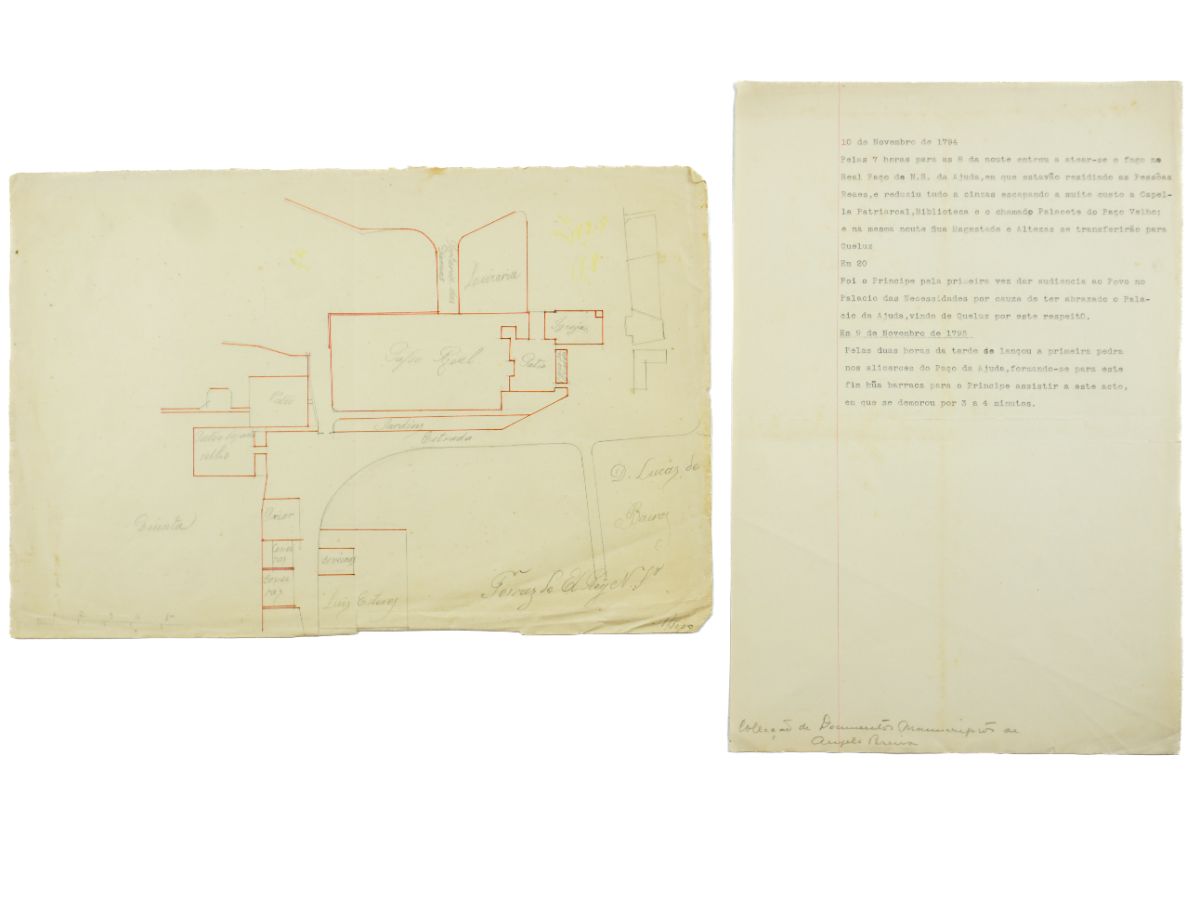 Louraria
Paço Real
Igreja
Patio
Patio
Jardim
Estrada
velho
Quinta
D. Lucas de
Luis Esteves
Terras de El Rey N. Sr
10 de Novembro de 1794
Pelas 7 horas para as 8 da noute entrou a atear-se o fogo no
Real Paço de N.S. da Ajuda,em que estavão residindo as Pessôas
Reaes,e reduziu tudo a cinzas escapando a muito custo a Capel-
la Patriarcal,Biblioteca e o chamado Palacete do Paço Velho;
e na mesma noute Sua Magestade e Altezas se transferirão para
Queluz
Em 20
Foi o Principe pela primeira vez dar audiencia ao Povo no
Palacio das Necessidades por cauza de ter abrazado o Pala-
cio da Ajuda,vindo de Queluz por este respeitO.
Em 9 de Novembro de 1795
Pelas duas horas da tarde se lançou a primeira pedra
nos alicerces do Paço da Ajuda,formando-se para este
fim hũa barraca para o Principe assistir a este acto,
em que se demorou por 3 a 4 minutos.
Collecção de Documentos Manuscriptos de
Angelo